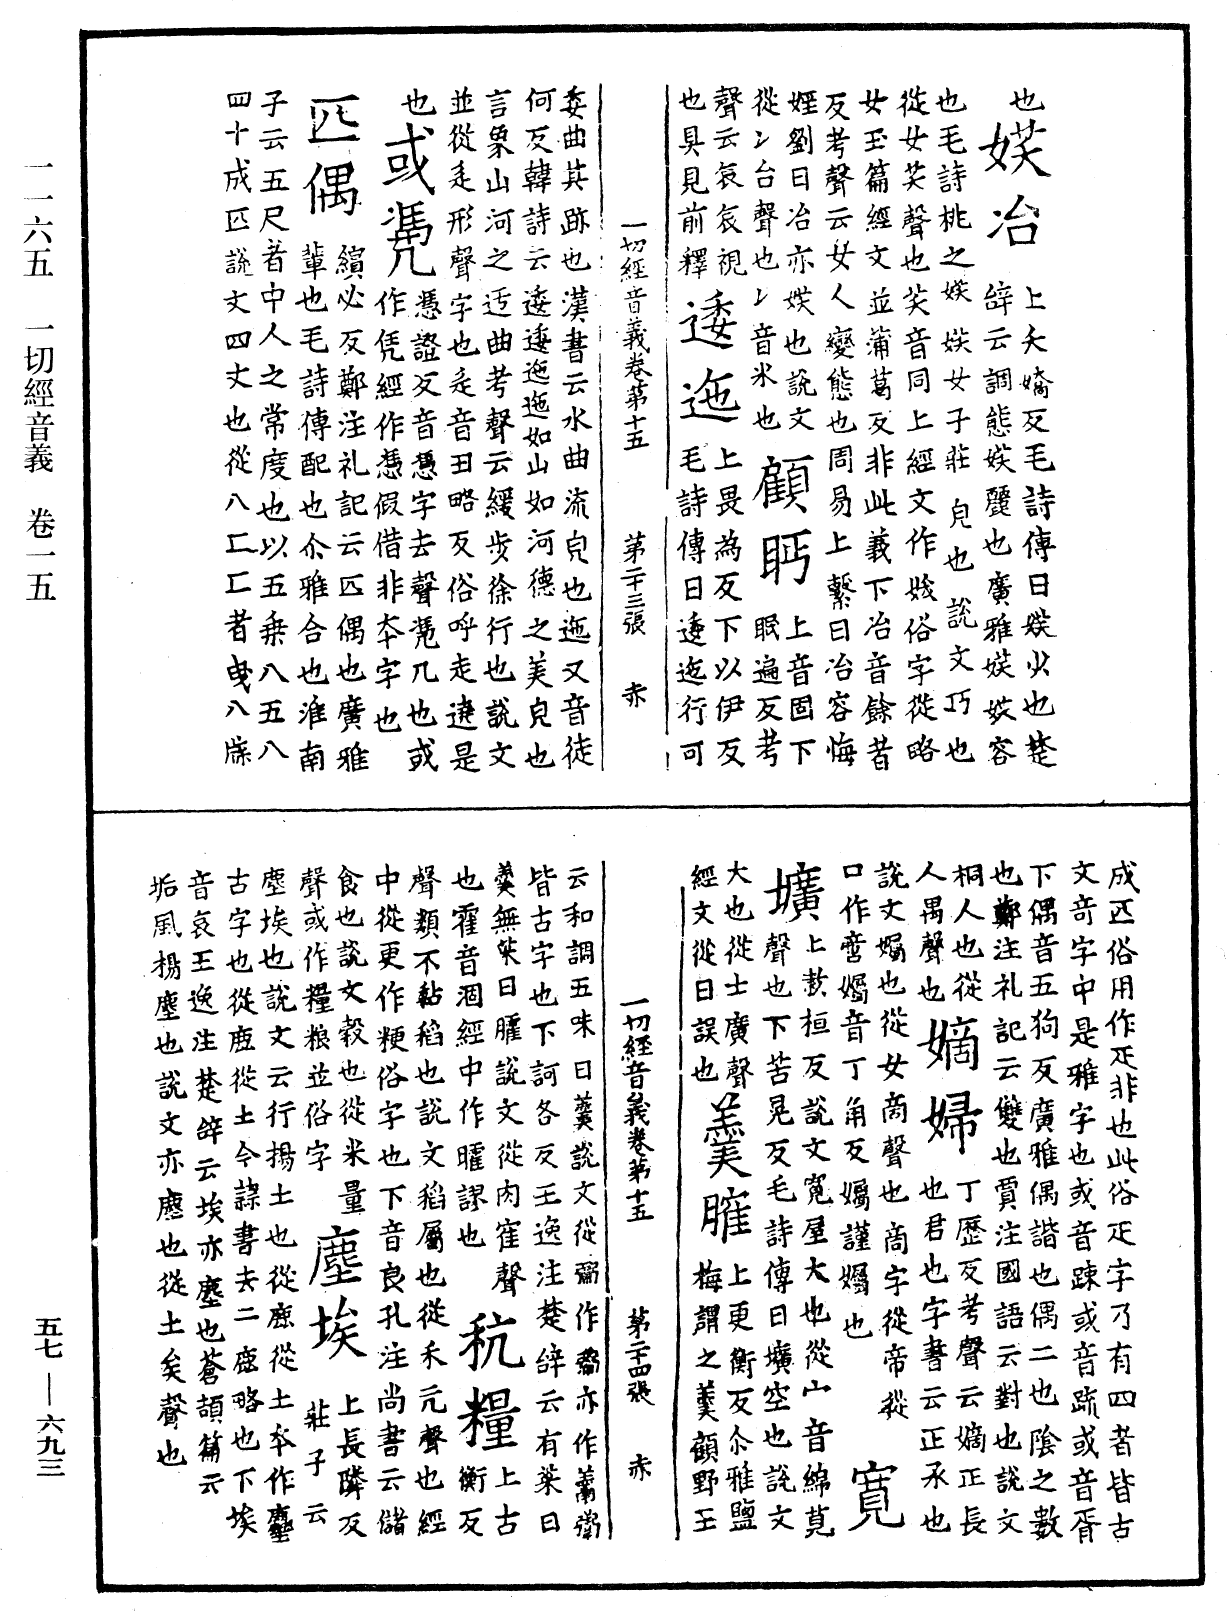 一一六五　一切經音義　卷一五
也媄冶上夭嬌反毛詩傳曰媄少也楚
辝云調態媄麗也廣雅媄姣容
也毛詩桃之媄媄女子莊皃也説文巧也
從女芺聲也芺音同上經文作妭俗字從略
女玉篇經文並蒲葛反非此義下冶音餘者
反考聲云女人變態也周易上繫曰冶容悔
婬劉曰冶亦媄也説文
從冫台聲也冫音氷也顧眄上音固下
眠遍反考
聲云哀哀視上畏為反下以伊反
也具見前釋逶迤毛詩傳曰逶迤行可
一切經音義卷第十五　第二十三張　赤
委曲其跡也漢書云水曲流皃也迤又音徒
何反韓詩云逶逶迤迤如山如河德之美皃也
言象山河之迃曲考聲云緩步徐行也説文
並從辵形聲字也辵音丑略反俗呼走遶是
也或凴憑證反音憑字去聲凴几也或
作凭經作憑假借非本字也
匹偶繽必反鄭注礼記云匹偶也廣雅
輩也毛詩傳配也尒雅合也淮南
子云五尺者中人之常度也以五乗八五八
四十成匹説文四丈也從八匸匸者曳八𭥫
成匹俗用作疋非也此俗疋字乃有四者皆古
文竒字中是雅字也或音踈或音䟽或音胥
下偶音五狗反廣雅偶諧也偶二也陰之數
也鄭注礼記云雙也賈注國語云對也説文
桐人也從丁歷反考聲云嫡正長
人禺聲也嫡婦也君也字書云正承也
説文孎也從女啇聲也啇字從帝從
口作啻孎音丁角反孎謹孎也寛
壙上欵桓反説文寛屋大也從山音綿莧
聲也下苦晃反毛詩傳曰壙空也説文
大也從士廣聲上更衡反尒雅鹽
經文從日誤也羹臛梅謂之羹顧野王
一切經音義卷第十五　第二十四張　赤
云和調五味曰羹説文從䰜作𩱧亦作䰞䰜
皆古字也下訶各反王逸注楚辝云有菜曰
羹無菜曰臛説文從肉隺聲
也霍音涸經中作曤謬也秔糧上古
衡反
聲類不黏稻也説文稻屬也從禾亢聲也經
中從更作粳俗字也下音良孔注尚書云儲
食也説文榖也從米量
聲或作糧粮並俗字塵埃上長隣反
莊子云
塵埃也説文云行揚土也從鹿從土本作麤
古字也從鹿從土今隷書去二鹿略也下埃
音哀王逸注楚辝云埃亦塵也蒼頡篇云
垢風揚塵也説文亦塵也從土矣聲也
五七—六九三